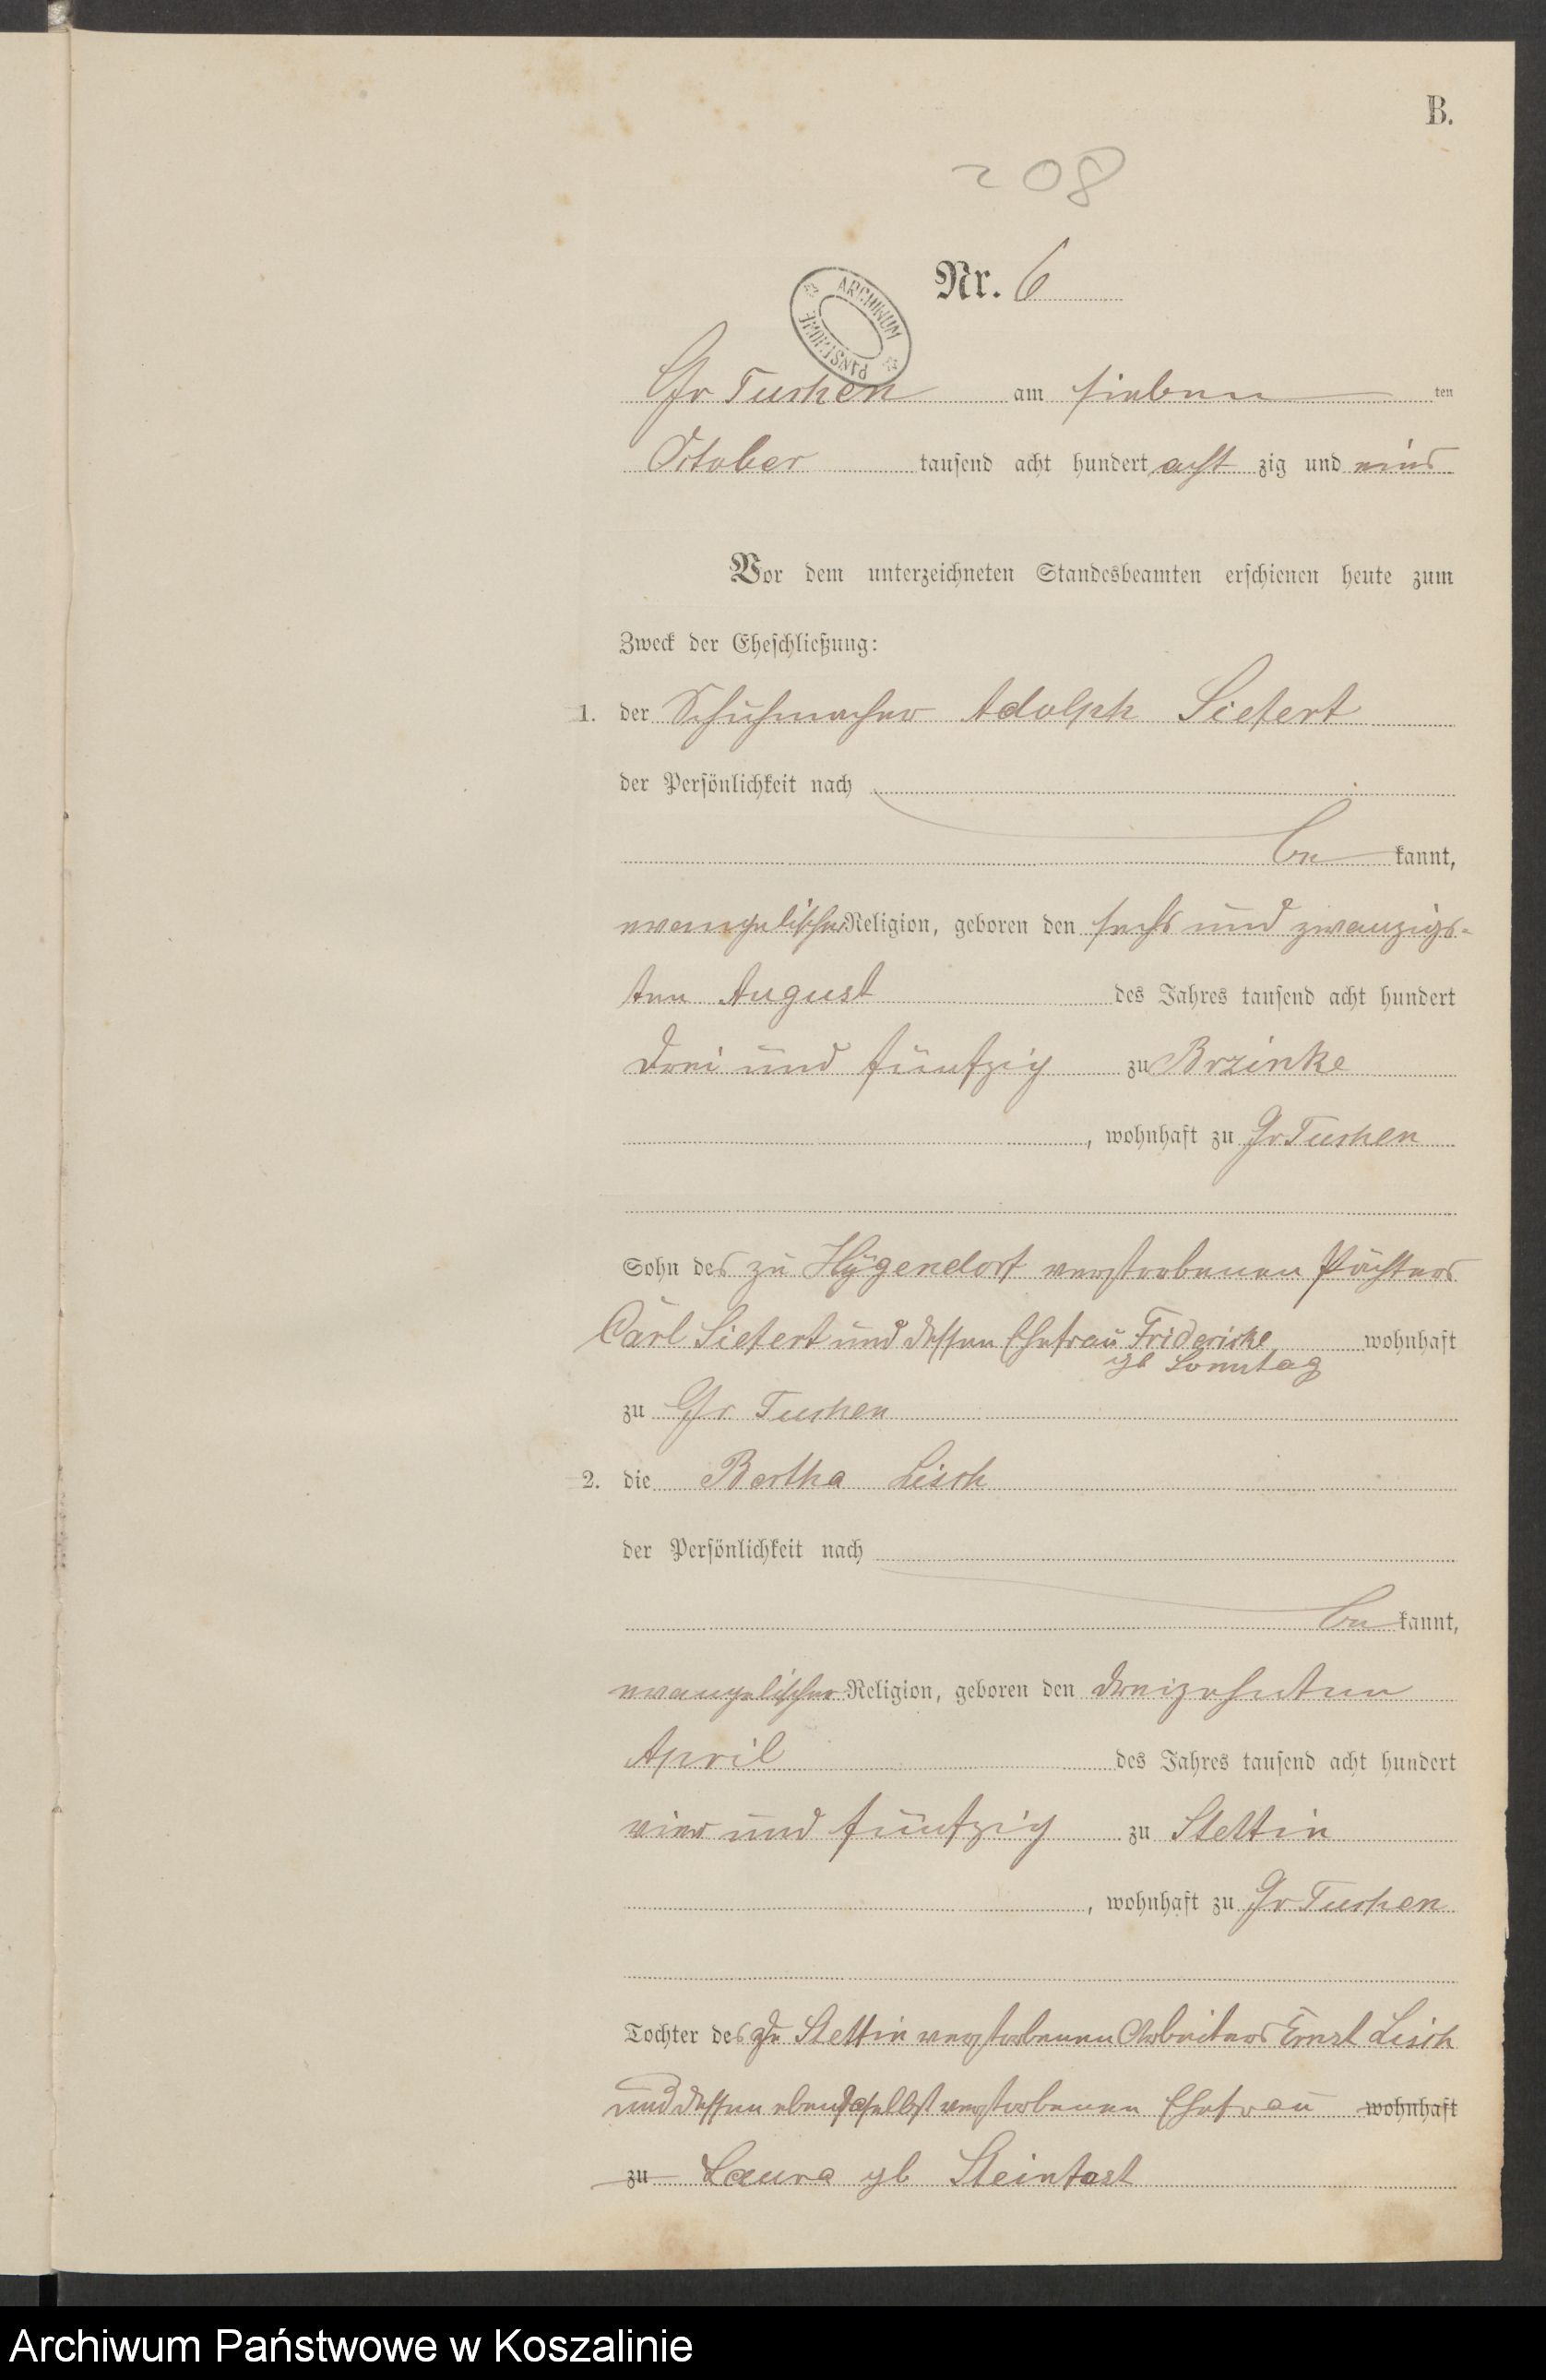 B.
208
Nr. 6
ARCHIWUM PAŃSTWOWE
Gr Tuchen am sieben ten
October tausend acht hundert acht zig und eins
Vor dem unterzeichneten Standesbeamten erschienen heute zum
Zweck der Eheschließung:
1. der Schuhmacher Adolph Siefert
der Persönlichkeit nach
be kannt,
evangelischer Religion, geboren den sechs und zwanzigs-
ten August des Jahres tausend acht hundert
drei und fünfzig zu Brzinke
, wohnhaft zu Gr Tuchen
Sohn des zu Hygendorf verstorbenen Pächters
Carl Siefert und dessen Ehefrau Fridericke wohnhaft
gb Sonntag
zu Gr Tuchen
2. die Bertha Lisch
der Persönlichkeit nach
be kannt,
evangelischer Religion, geboren den dreizehnten
April des Jahres tausend acht hundert
vier und fünfzig zu Stettin
, wohnhaft zu Gr Tuchen
Tochter des zu Stettin verstorbenen Arbeiters Ernst Lisch
und dessen ebendaselbst verstorbenen Ehefrau wohnhaft
zu Laura gb Steinfast
Archiwum Państwowe w Koszalinie